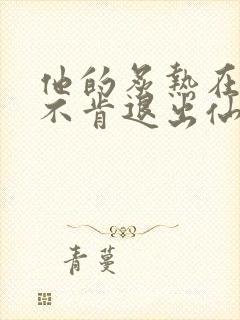 他的炙热在
不肯退出仙
青蔓